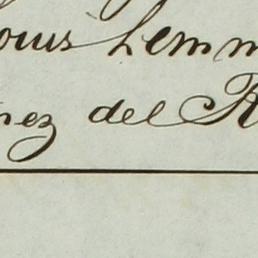 ouis Lemm
nez del R